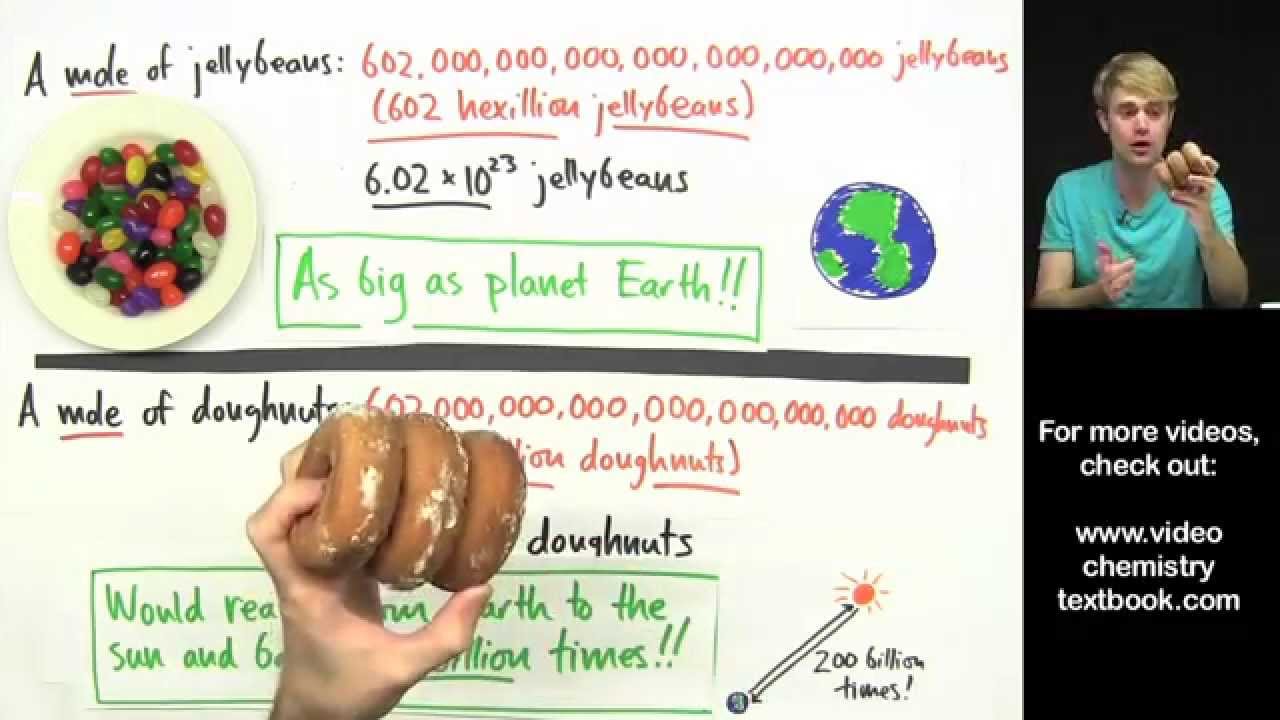 A mole of jellybeans: 602,000,000,000,000,000,000,000 jellybeans
(602 hexillion jellybeans)
6.02 × 10²³ jellybeans
As big as planet Earth!!
A mole of doughnuts: 602,000,000,000,000,000,000,000 doughnuts
doughnuts)
doughnuts
Would to the
sun and times!!
200 billion
times!
For more videos,
check out:
www.video
chemistry
textbook.com